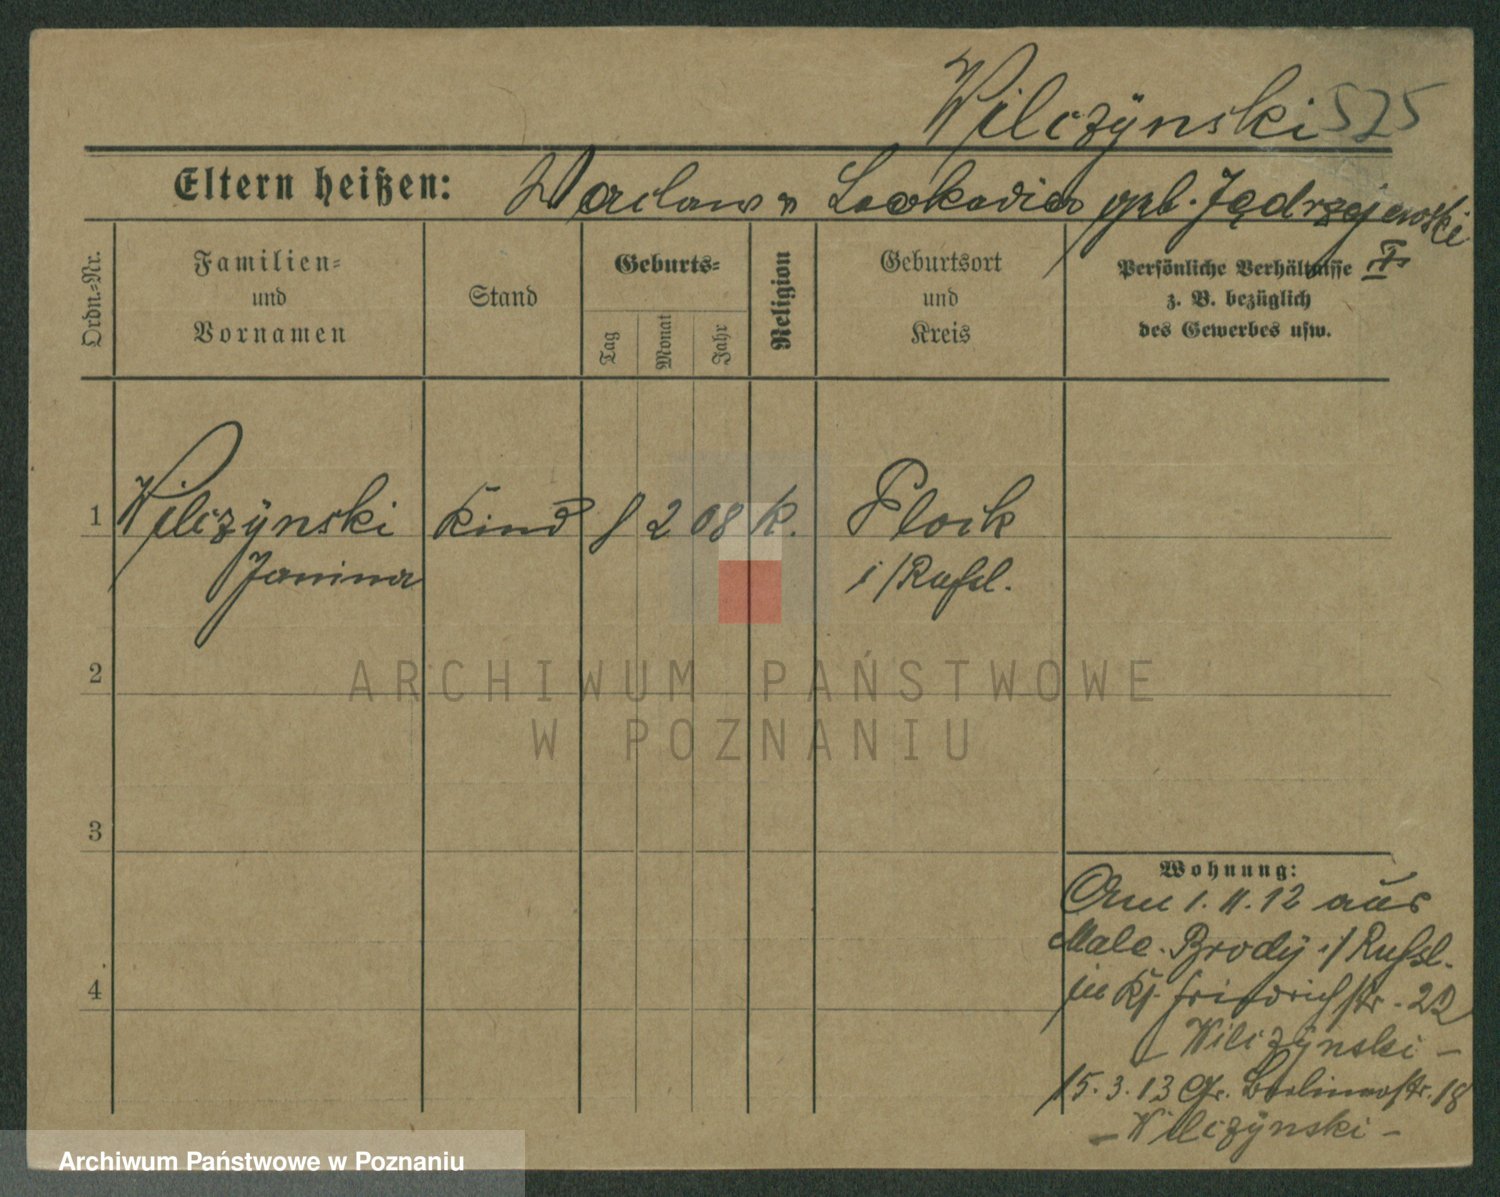 Wilczÿnski 525
Eltern heißen: Waclaw u Leokadia geb. Jędrzejewski
Ordn.=Nr.
Familien=
und
Vornamen
Stand
Geburts=
Tag
Monat
Jahr
Religion
Geburtsort
und
Kreis
Persönliche Verhältnisse
z. B. bezüglich
des Gewerbes usw.
1 Wilczÿnski Kind 8 2 08 K. Plock
Janina i/Rußl.
2
3
4
Wohnung:
Am 1.11.12 aus
Male. Brodÿ i/Rußl.
in Friedrichstr. 22
Wilczÿnski –
15.3.13 Gr. Berlinerstr. 18
– Wilczÿnski –
ARCHIWUM PAŃSTWOWE
W POZNANIU
Archiwum Państwowe w Poznaniu